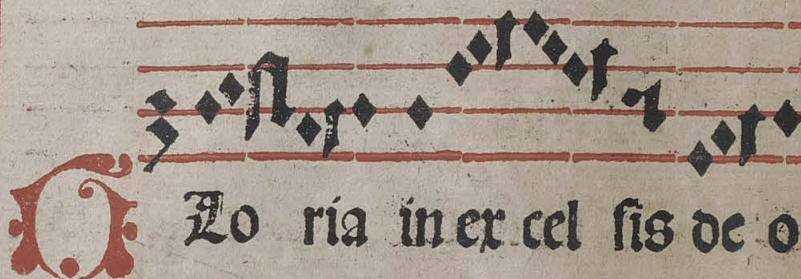 GLo ria in ex cel ſis de o